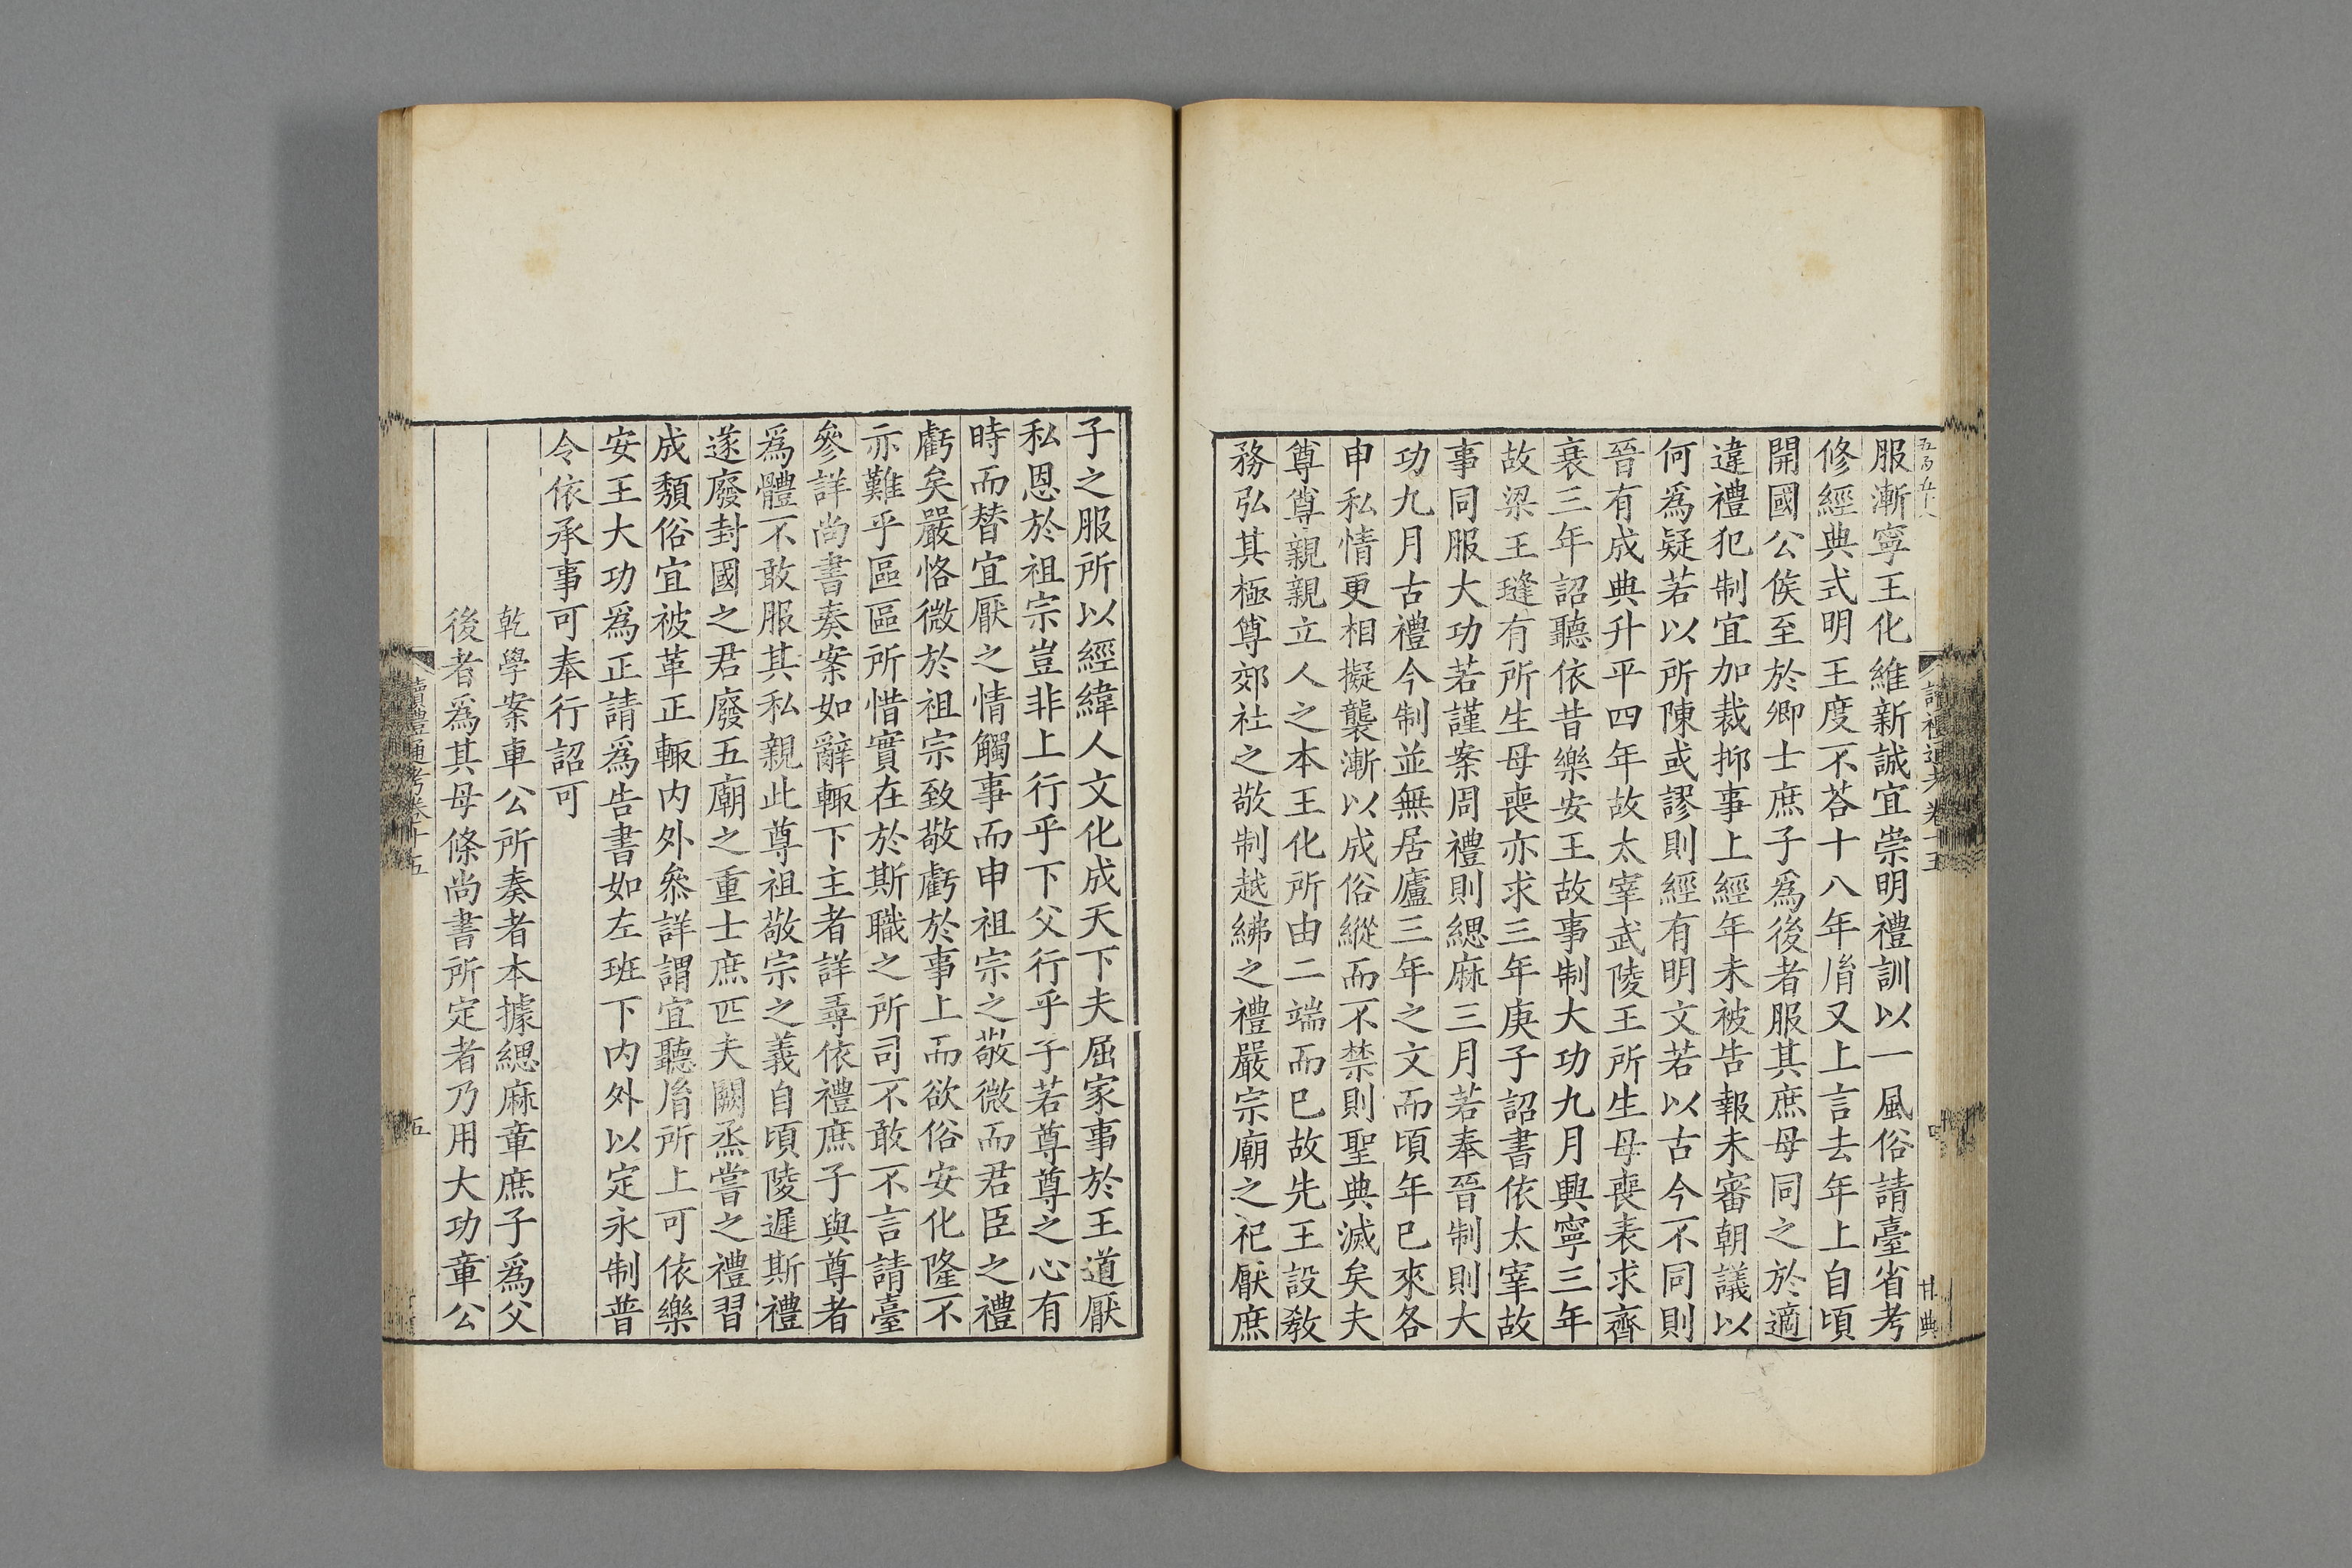 服漸寧王化維新誠宜崇明禮訓以一風俗請臺省考
修經典式明王度不荅十八年胤又上言去年上自頃
開國公侯至於卿士庶子爲後者服其庶母同之於適
違禮犯制宜加裁抑事上經年未被告報未審朝議以
何爲疑若以所陳或謬則經有明文若以古今不同則
晉有成典升平四年故太宰武陵王所生母喪表求齊
衰三年詔聽依昔樂安王故事制大功九月興寧三年
故梁王㻴有所生母喪亦求三年庚子詔書依太宰故
事同服大功若謹案周禮則緦麻三月若奉晉制則大
功九月古禮今制並無居廬三年之文而頃年已來各
申私情更相擬襲漸以成俗縱而不禁則聖典滅矣夫
尊尊親親立人之本王化所由二端而已故先王設敎
務弘其極尊郊社之敬制越紼之禮嚴宗廟之祀厭庶
讀禮通考卷十五
子之服所以經緯人文化成天下夫屈家事於王道厭
私恩於祖宗豈非上行乎下父行乎子若尊尊之心有
時而替宜厭之情觸事而申祖宗之敬微而君臣之禮
虧矣嚴恪微於祖宗致敬虧於事上而欲俗安化隆不
亦難乎區區所惜實在於斯職之所司不敢不言請臺
參詳尚書奏案如辭輒下主者詳尋依禮庶子與尊者
爲體不敢服其私親此尊祖敬宗之義自頃陵遲斯禮
遂廢封國之君廢五廟之重士庶匹夫闕烝嘗之禮習
成頹俗宜被革正輒内外參詳謂宜聽胤所上可依樂
安王大功爲正請爲告書如左班下内外以定永制普
令依承事可奉行詔可
乾學案車公所奏者本據緦麻章庶子爲父
後者爲其母條尚書所定者乃用大功章公
讀禮通考卷十五
五